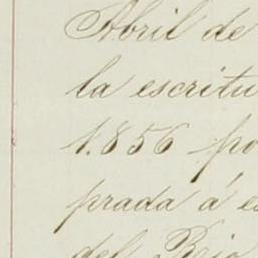 Abril de
la escritu
1.856 po
prada á es
del Rio